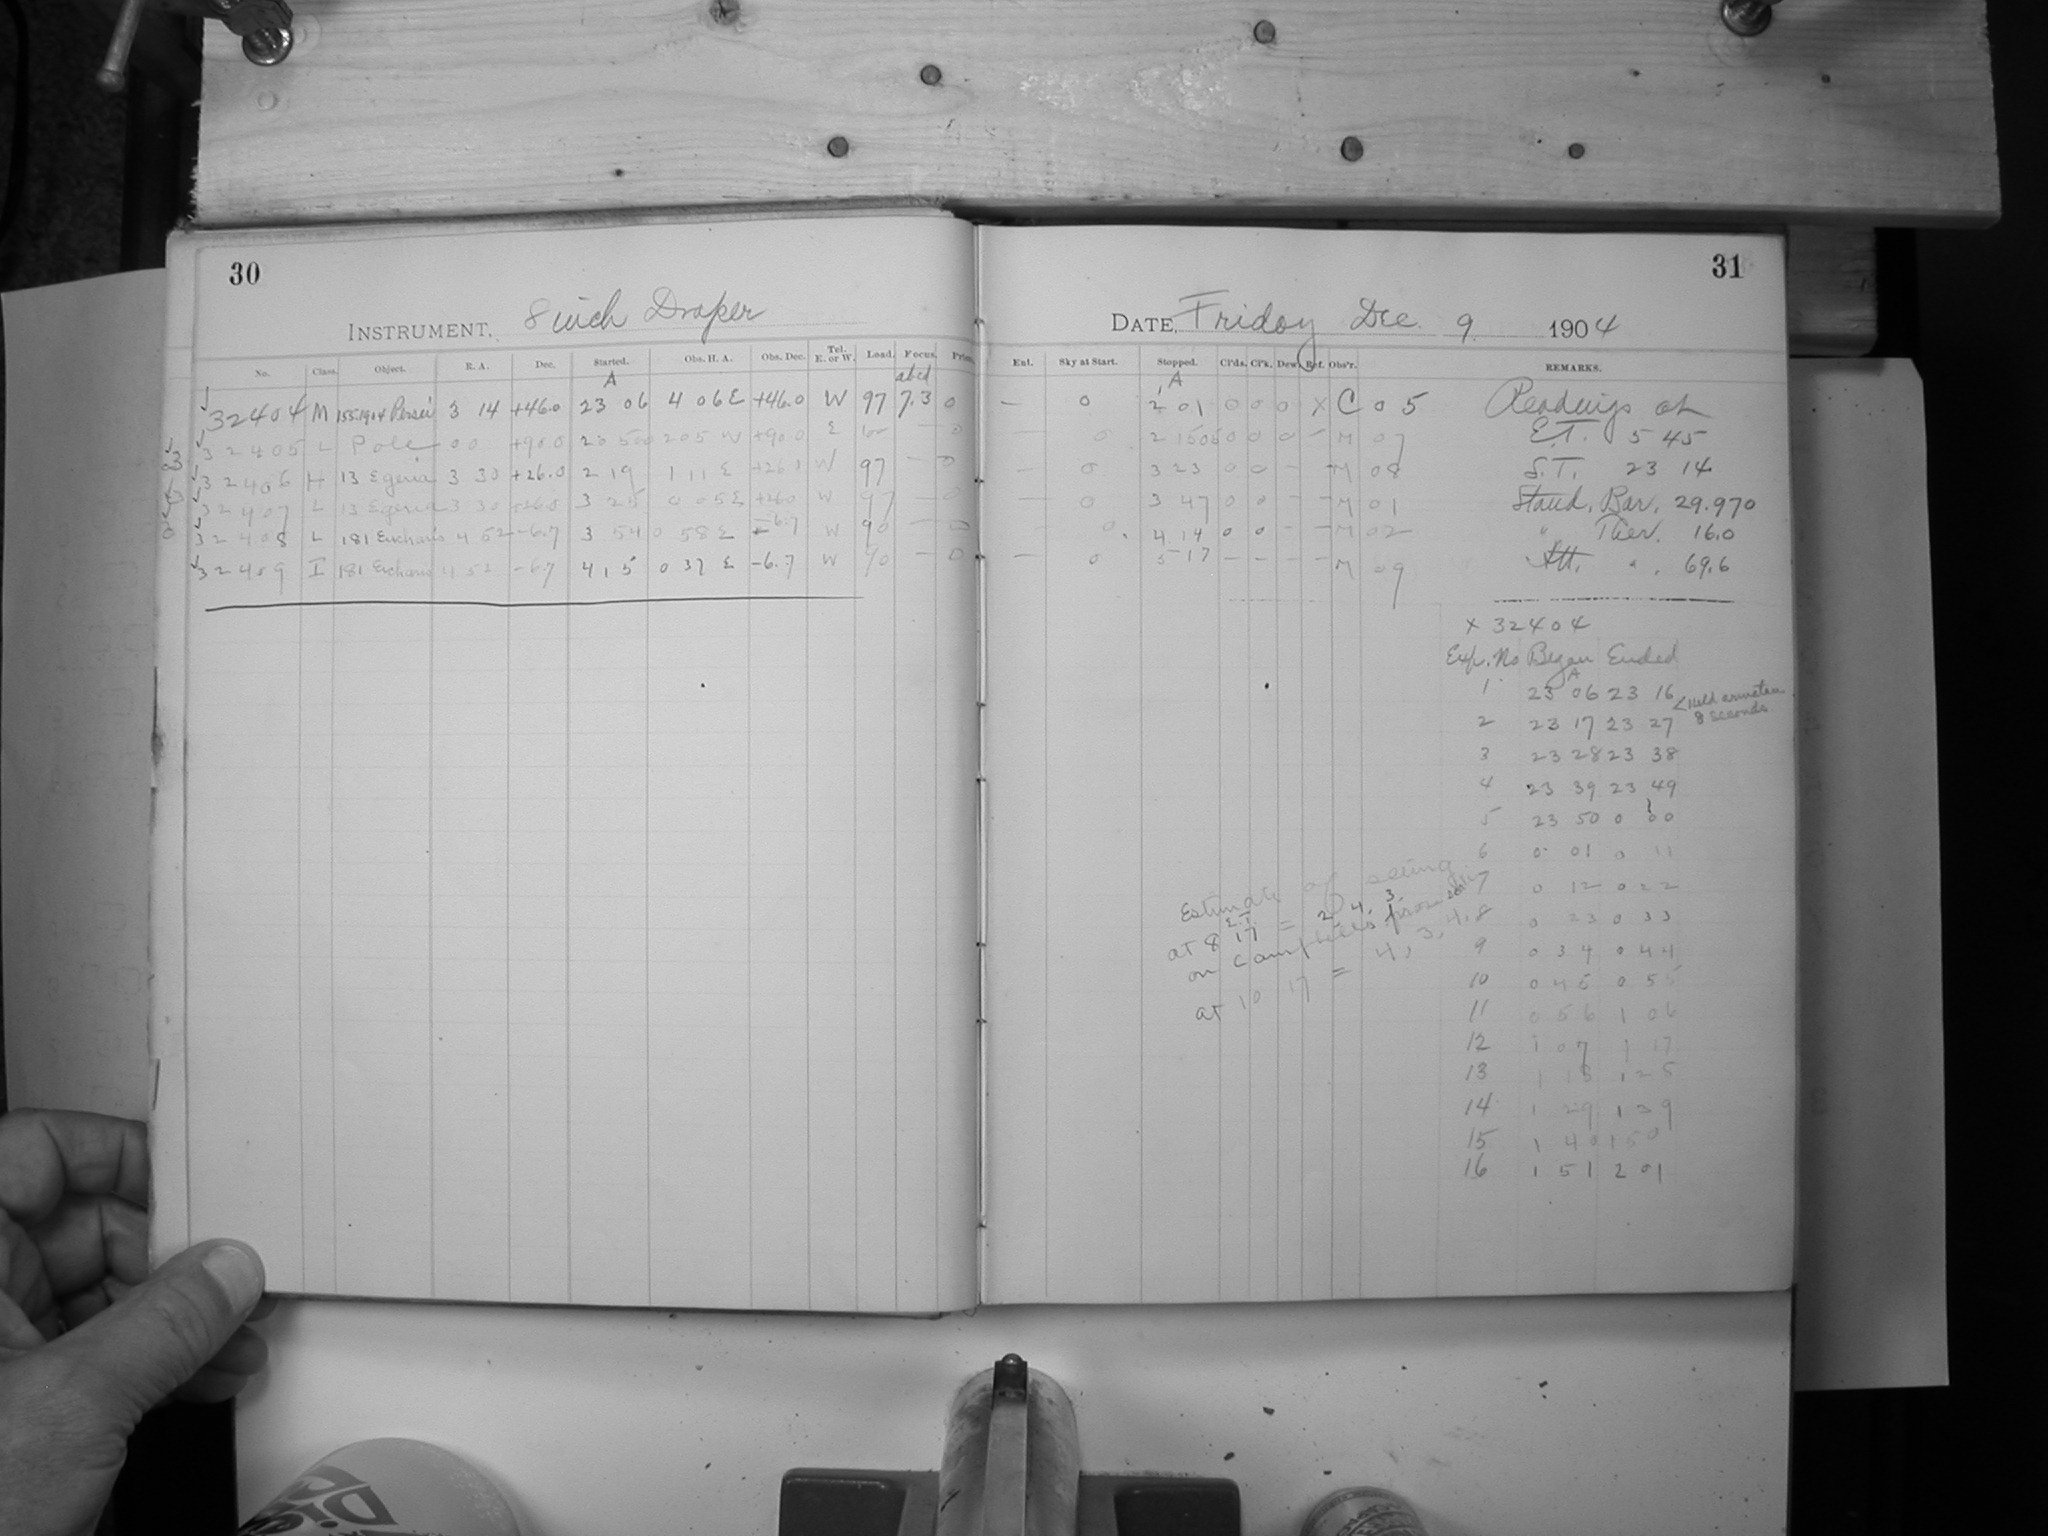 30
INSTRUMENT, 8 inch Draper
No. Class. Object. R. A. Dec. Started. Obs. H. A. Obs. Dec. Tel. E. or W. Load. Focus.
A abcd
32404 M 155.1904 Persei 3 14 +46.0 23 06 4 06 E +46.0 W 97 7.3 0
32405 L Pole 0 0 +90.0 2 05 W +90.0 E 60 — 0
32406 H 13 Egeria 3 30 +26.0 2 19 1 11 E +26.0 W 97 — 0
32407 L 13 Egeria 3 30 +26.0 3 25 0 05 E +26.0 W 97 — 0
32408 L 181 Eucharis 4 52 -6.7 3 54 0 58 E -6.7 W 90 — 0
32409 I 181 Eucharis 4 52 -6.7 4 15 0 37 E -6.7 W 90 — 0
31
DATE, Friday Dec. 9 1904
Ent. Sky at Start. Stopped. Cl'ds. Cl'k. Dew. Ref. Obs'r. REMARKS.
A
— 0 2 01 0 0 0 X C 0 5 Readings at
— 0 0 0 0 – M 07 E.T. 5 45
— 0 3 23 0 0 – – M 08 S.T. 23 14
— 0 3 47 0 0 – – M 01 Stand. Bar. 29.970
— 0 4 14 0 0 – – M 02 " Ther. 16.0
— 0 5 17 – – – – M 09 Att. " . 69.6
x 32404
Exp. No Began Ended
A
1 23 06 23 16
< Held armature
8 seconds.
2 23 17 23 27
3 23 28 23 38
4 23 39 23 49
5 23 50 0 00
6 0 01 0 11
7 0 12 0 22
8 0 23 0 33
9 0 34 0 44
10 0 45 0 55
11 0 56 1 06
12 1 07 1 17
13 1 18 1 28
14 1 29 1 39
15 1 40 1 50
16 1 51 2 01
Estimate of seeing
at 8 17 E.T. = 2, 4, 3,
on Campbell's
at 10 17 = 4, 3, 4.